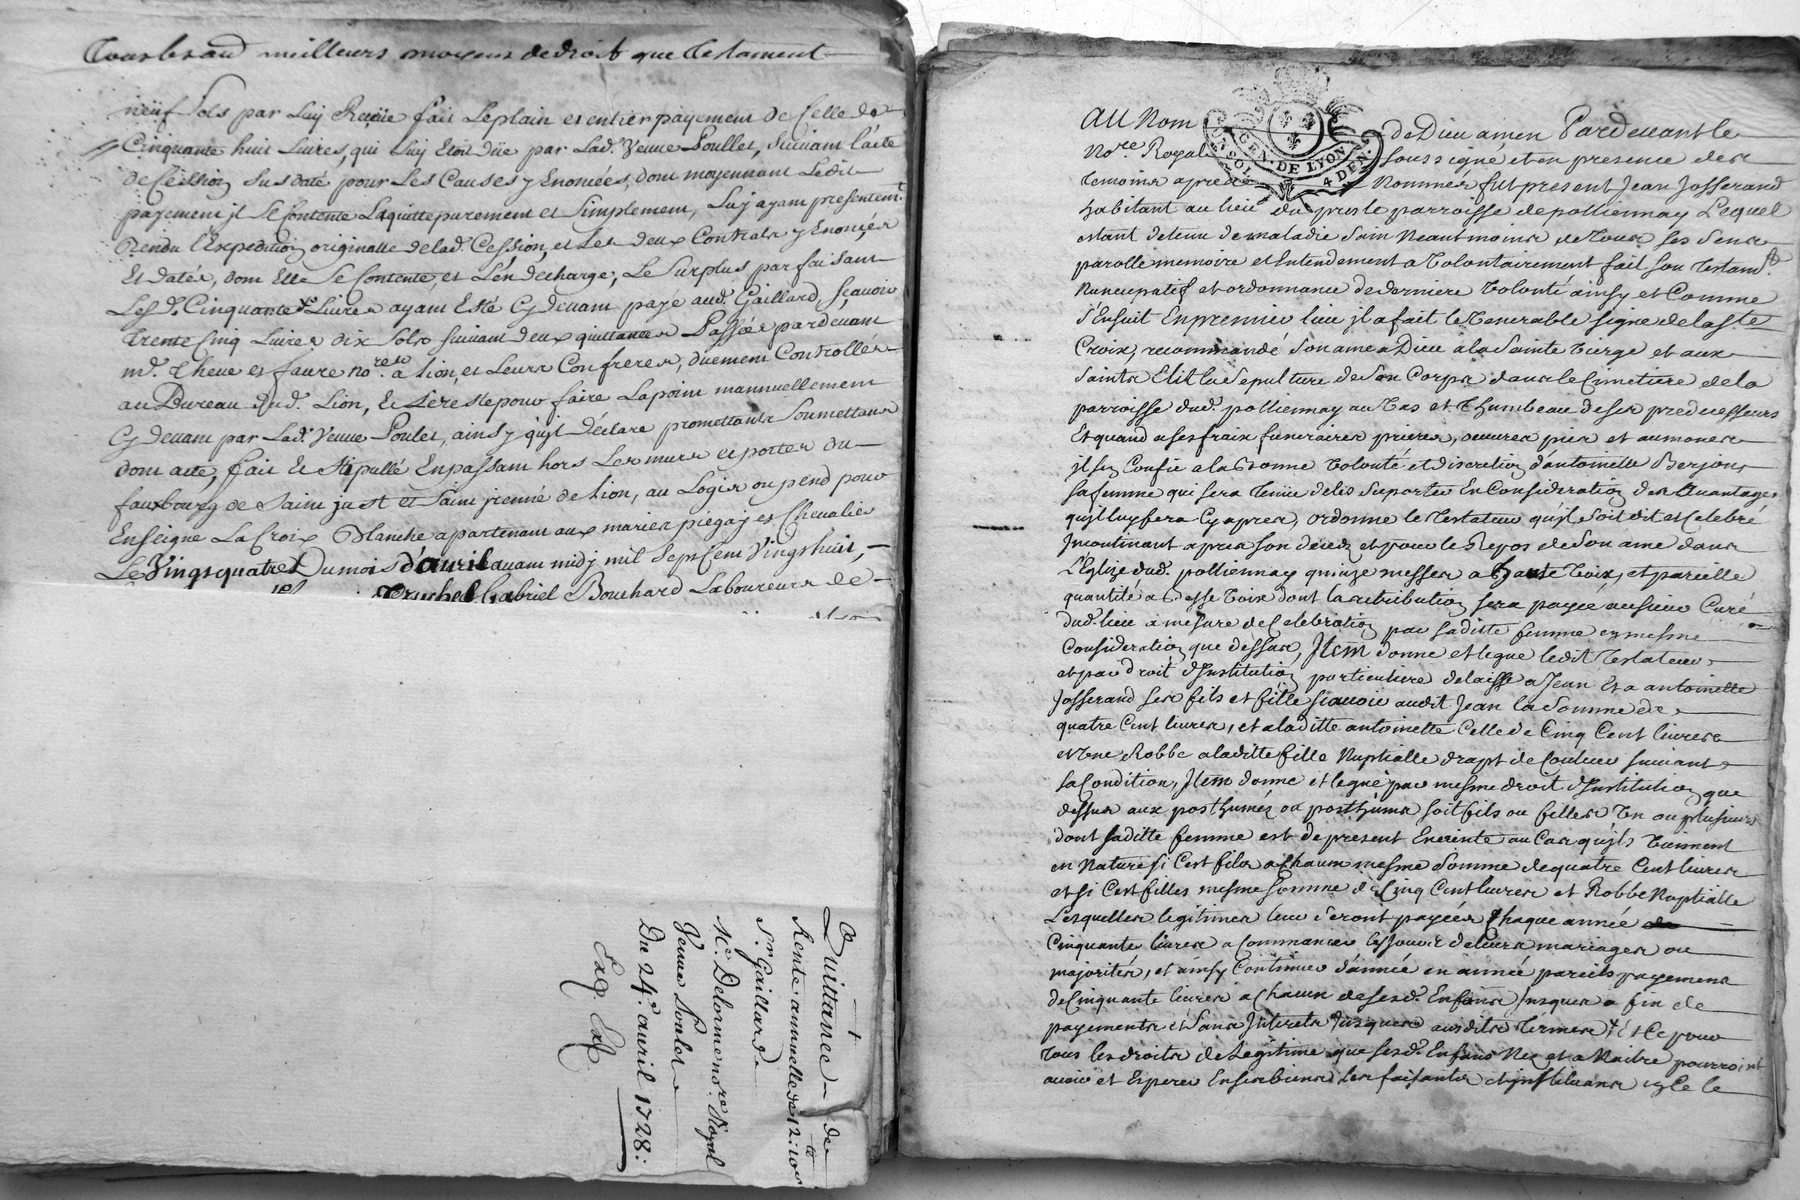 Tous broud meilleurs moyens de droit que Testament
neüf sols par Luy Reçüe fait Le plain et entier payement de Celle de
Cinquante huit Livres, qui Luy Etoit düe par Lad. Veuve Poullet, suivant l'acte
de Cession susdaté pour Les Causes y Enoncées, dont moyennant Ledit
payement jl se Contente Laquitte purement et simplement, Luy ayant presentemt.
Rendu l'Expedition originalle de lad. Cession, et Les deux Contrats y Enoncés
Et datés, dont Elle se Contente, et L'en decharge; Le surplus parfaisant
Lesd. Cinquante Livres ayant Esté Cy devant payé aud. Gaillard, sçavoir
trente Cinq Livres dix sols suivant deux quittances Passées pardevant
me. Theve et faure nores. a lion, et Leurs Confreres, duement Controllés
au Bureau dud. Lion, Et Le reste pour faire Lapoint mannuellement
Cy devant par Lad. Veuve Poulet, ainsy qu'jl déclare promettants soumettans
dont acte, fait Et stipullé En passant hors Les murs et portes du
fauxbourg de saint just et saint jrenné de lion, au Logis ou pend pour
Enseigne La Croix Blanche apartenant aux mariés piegay et Chevalier
Le Vingt quatre Du mois d'auril avant midy mil sept Cent Vingt huit,
Truchet Gabriel Bouchard Laboureurs de
Quittance de
Rente annuelle de 12: 10s
Sr. Gaillard
Me. Delorme nore. Royal
Veuve Poulet
Du 24e. auril 1728:
Exq. Ext
GEN. DE LYON
UN SOL 4 DEN.
AU Nom de Dieu amen Pardevant le
Nore. Royal soussigné et en presence des
temoins apres Nommés fut present Jean Josserand
habitant au lieu du pres le parroisse de polliennay Lequel
estant detenu de maladie sain Neantmoins de tous ses sens
parolle memoire et Entendement a Volontairement fait son testamt.
Nuncupatif et ordonnance de derniere Volonté ainsy et Comme
s'Ensuit En premier lieu jl a fait le Venerable signe de la ste
Croix, recommandé son ame a Dieu a la sainte Vierge et aux
saints Elit la sepulture de son Corps dans le Cimetiere de la
parroisse dud. polliennay au Vas et thumbeau de ses predecesseurs
Et quand a ses fraix funeraires prieres, oeuvres pies et aumones
jl s'en Confie a la bonne Volonté et discretion d'antoinette Berjon
sa femme qui sera tenüe de les suporter En Consideration des avantages
qu'jl luy fera Cy apres, ordonne le testateur qu'jl soit dit et Celebré
jncontinant apres son decedz et pour le Repos de son ame dans
L'Eglize dud. polliennay quinze messes a haute Voix, et pareille
quantité a Basse Voix dont la retribution sera payée au sieur Curé
dud. lieu a mesure de Celebration par saditte femme en mesme
Consideration que dessus, Jtem donne et legue ledit testateur
et par droit d'Institution particuliere delaisse a Jean Et a antoinette
Josserand ses fils et fille sçavoir audit Jean la somme de
quatre Cent livres, et a laditte antoinette Celle de Cinq Cent livres
et Vne Robbe a laditte fille Nuptialle drapt de Couleur suivant
sa Condition, Jtem donne et legue par mesme droit d'Institution que
dessus aux posthumes ou posthume soit fils ou filles Vn ou plusieurs
dont saditte femme est de present Enceinte au Cas qu'jls Viennent
en Nature si C'est fils a Chacun mesme somme de quatre Cent livres
et si C'est filles mesme somme de Cinq Cent livres et Robbe Nuptialle
Lesquelles legitimes leur seront payées Chaque année
Cinquante livres a Commancer Le jour de leurs mariages ou
majorités, et ainsy Continuer d'année en année pareils payements
de Cinquante livres a Chacun de sesd. Enfans Jusques a fin de
payements et sans Jnterets Jusques auxdits termes, Et Ce pour
tous les droits de Legitime que sesd. Enfans Nez et a Naitre pourroient
avoir et Esperer En ses biens Les faisants et jnstituans